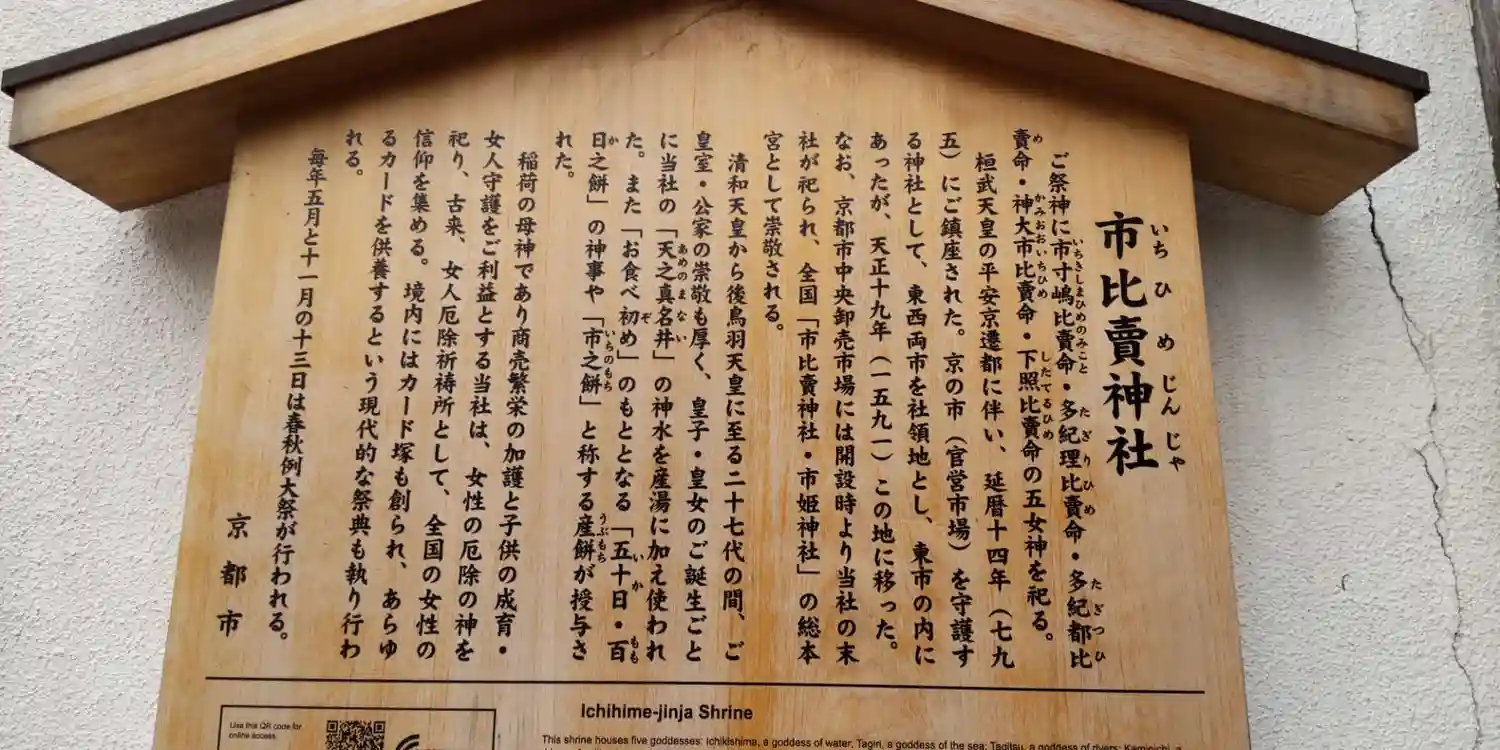 市比賣神社
いちひめじんじゃ
ご祭神に市寸嶋比賣命・多紀理比賣命・多紀都比
賣命・神大市比賣命・下照比賣命の五女神を祀る。
桓武天皇の平安京遷都に伴い、延暦十四年（七九
五）にご鎮座された。京の市（官営市場）を守護す
る神社として、東西両市を社領地とし、東市の内に
あったが、天正十九年（一五九一）この地に移った。
なお、京都市中央卸売市場には開設時より当社の末
社が祀られ、全国「市比賣神社・市姫神社」の総本
宮として崇敬される。
清和天皇から後鳥羽天皇に至る二十七代の間、ご
皇室・公家の崇敬も厚く、皇子・皇女のご誕生ごと
に当社の「天之真名井」の神水を産湯に加え使われ
た。また「お食べ初め」のもととなる「五十日・百
日之餅」の神事や「市之餅」と称する産餅が授与さ
れた。
稲荷の母神であり商売繁栄の加護と子供の成育・
女人守護をご利益とする当社は、女性の厄除の神を
祀り、古来、女人厄除祈祷所として、全国の女性の
信仰を集める。境内にはカード塚も創られ、あらゆ
るカードを供養するという現代的な祭典も執り行わ
れる。
毎年五月と十一月の十三日は春秋例大祭が行われる。
京都市
Use this QR code for
online access.
Ichihime-jinja Shrine
This shrine houses five goddesses: Ichikishima, a goddess of water, Tagiri, a goddess of the sea; Tagitsu, a goddess of rivers; Kamioichi, a